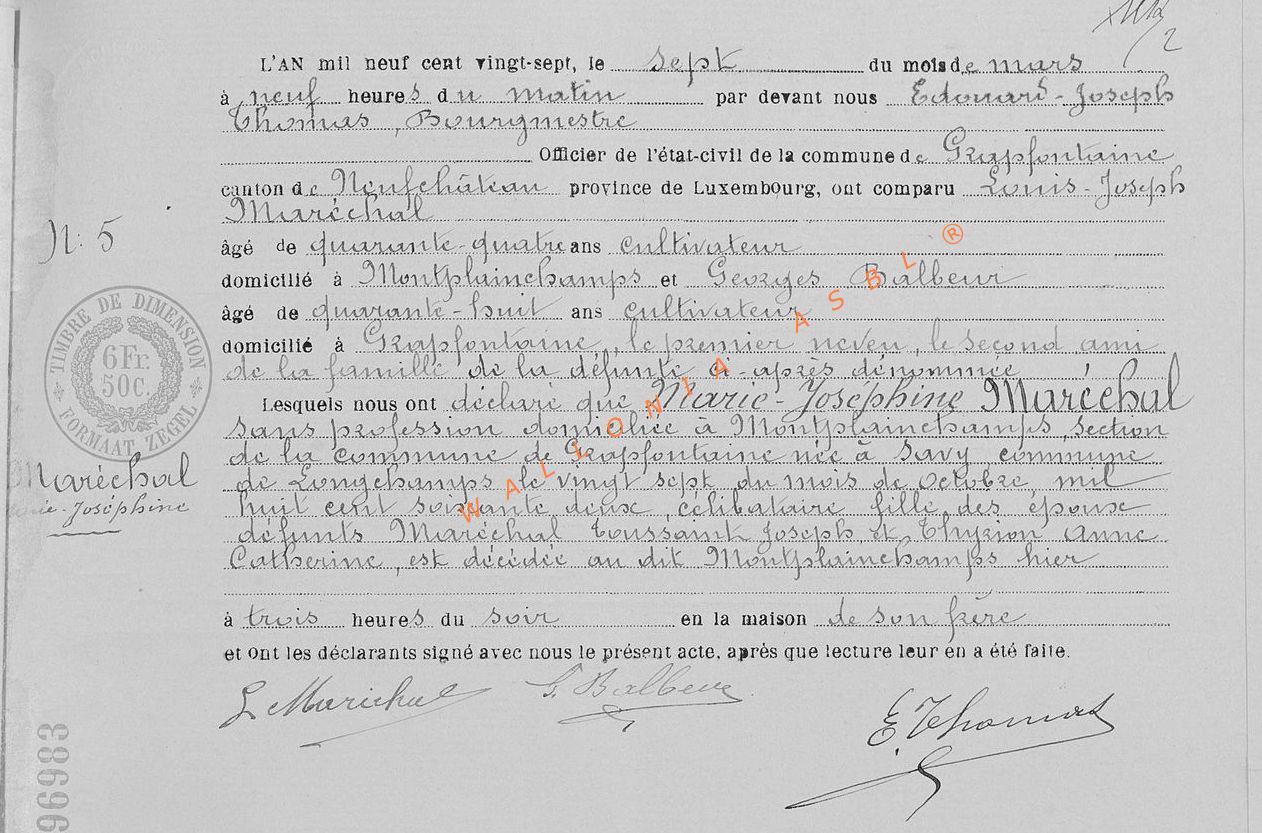 2
L'AN mil neuf cent vingt-sept, le sept du mois de mars
à neuf heures du matin par devant nous Edouard-Joseph
Thomas, Bourgmestre
Officier de l'état-civil de la commune de Grapfontaine
canton de Neufchâteau province de Luxembourg, ont comparu Louis-Joseph
Maréchal
N: 5
âgé de quarante-quatre ans cultivateur
domicilié à Montplainchamps et Georges Balbeur
âgé de quarante-huit ans cultivateur
domicilié à Grapfontaine, le premier neveu, le second ami
de la famille de la défunte ci-après dénommée
Lesquels nous ont déclaré que Marie-Joséphine Maréchal
sans profession domiciliée à Montplainchamps, section
de la commune de Grapfontaine née à Savy commune
de Longchamps le vingt sept du mois de octobre mil
huit cent soixante deux, célibataire fille des époux
défunts Maréchal Toussaint Joseph et Thyrion Anne
Catherine, est décédée au dit Montplainchamps hier
à trois heures du soir en la maison de son frère
et ont les déclarants signé avec nous le présent acte, après que lecture leur en a été faite.
L Maréchal G. Balbeur
E. Thomas
TIMBRE DE DIMENSION
6Fr.
50C.
FORMAAT ZEGEL
Maréchal
Marie-Joséphine
96983
WALLONIA ASBL ®